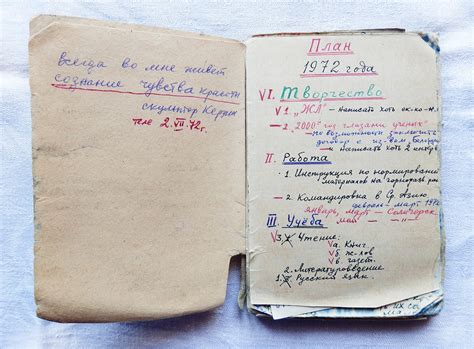 всегда во мне живёт
сознание чувства красоты
скульптор
теле 2.VII.72г.
План
1972 года
VI. Творчество
V 1. „ЖЛ" – написать хоть
– 2. „2000" год глазами учёных"
– по возможности заключить
договор с из-вом
– и написать хоть 2
II. Работа
1. Инструкция по нормированию
материалов на
– 2. Командировка в Ср. Азию
феврал – март 1972
январь, март – Солигорск
май
III. Учёба
V 3. Чтение:
Vа. Книг
Vб. ж-лов
Vв. газет.
2. Литературоведение
1. Русский язык.